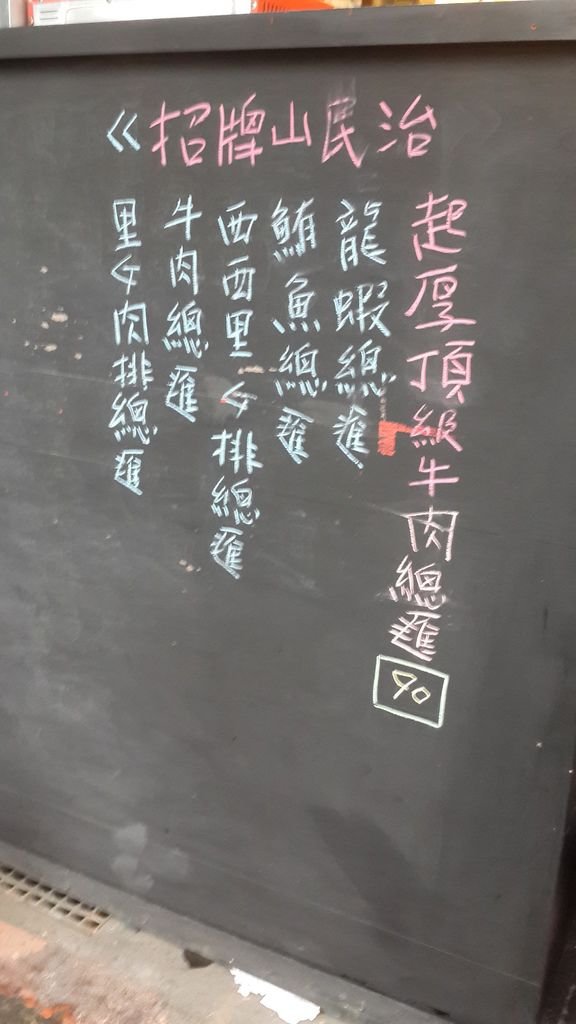 治民山牌招 《
起厚頂級牛肉總匯 90
龍蝦總匯
鮪魚總匯
西西里ㄠ排總匯
牛肉總匯
里ㄠ肉排總匯